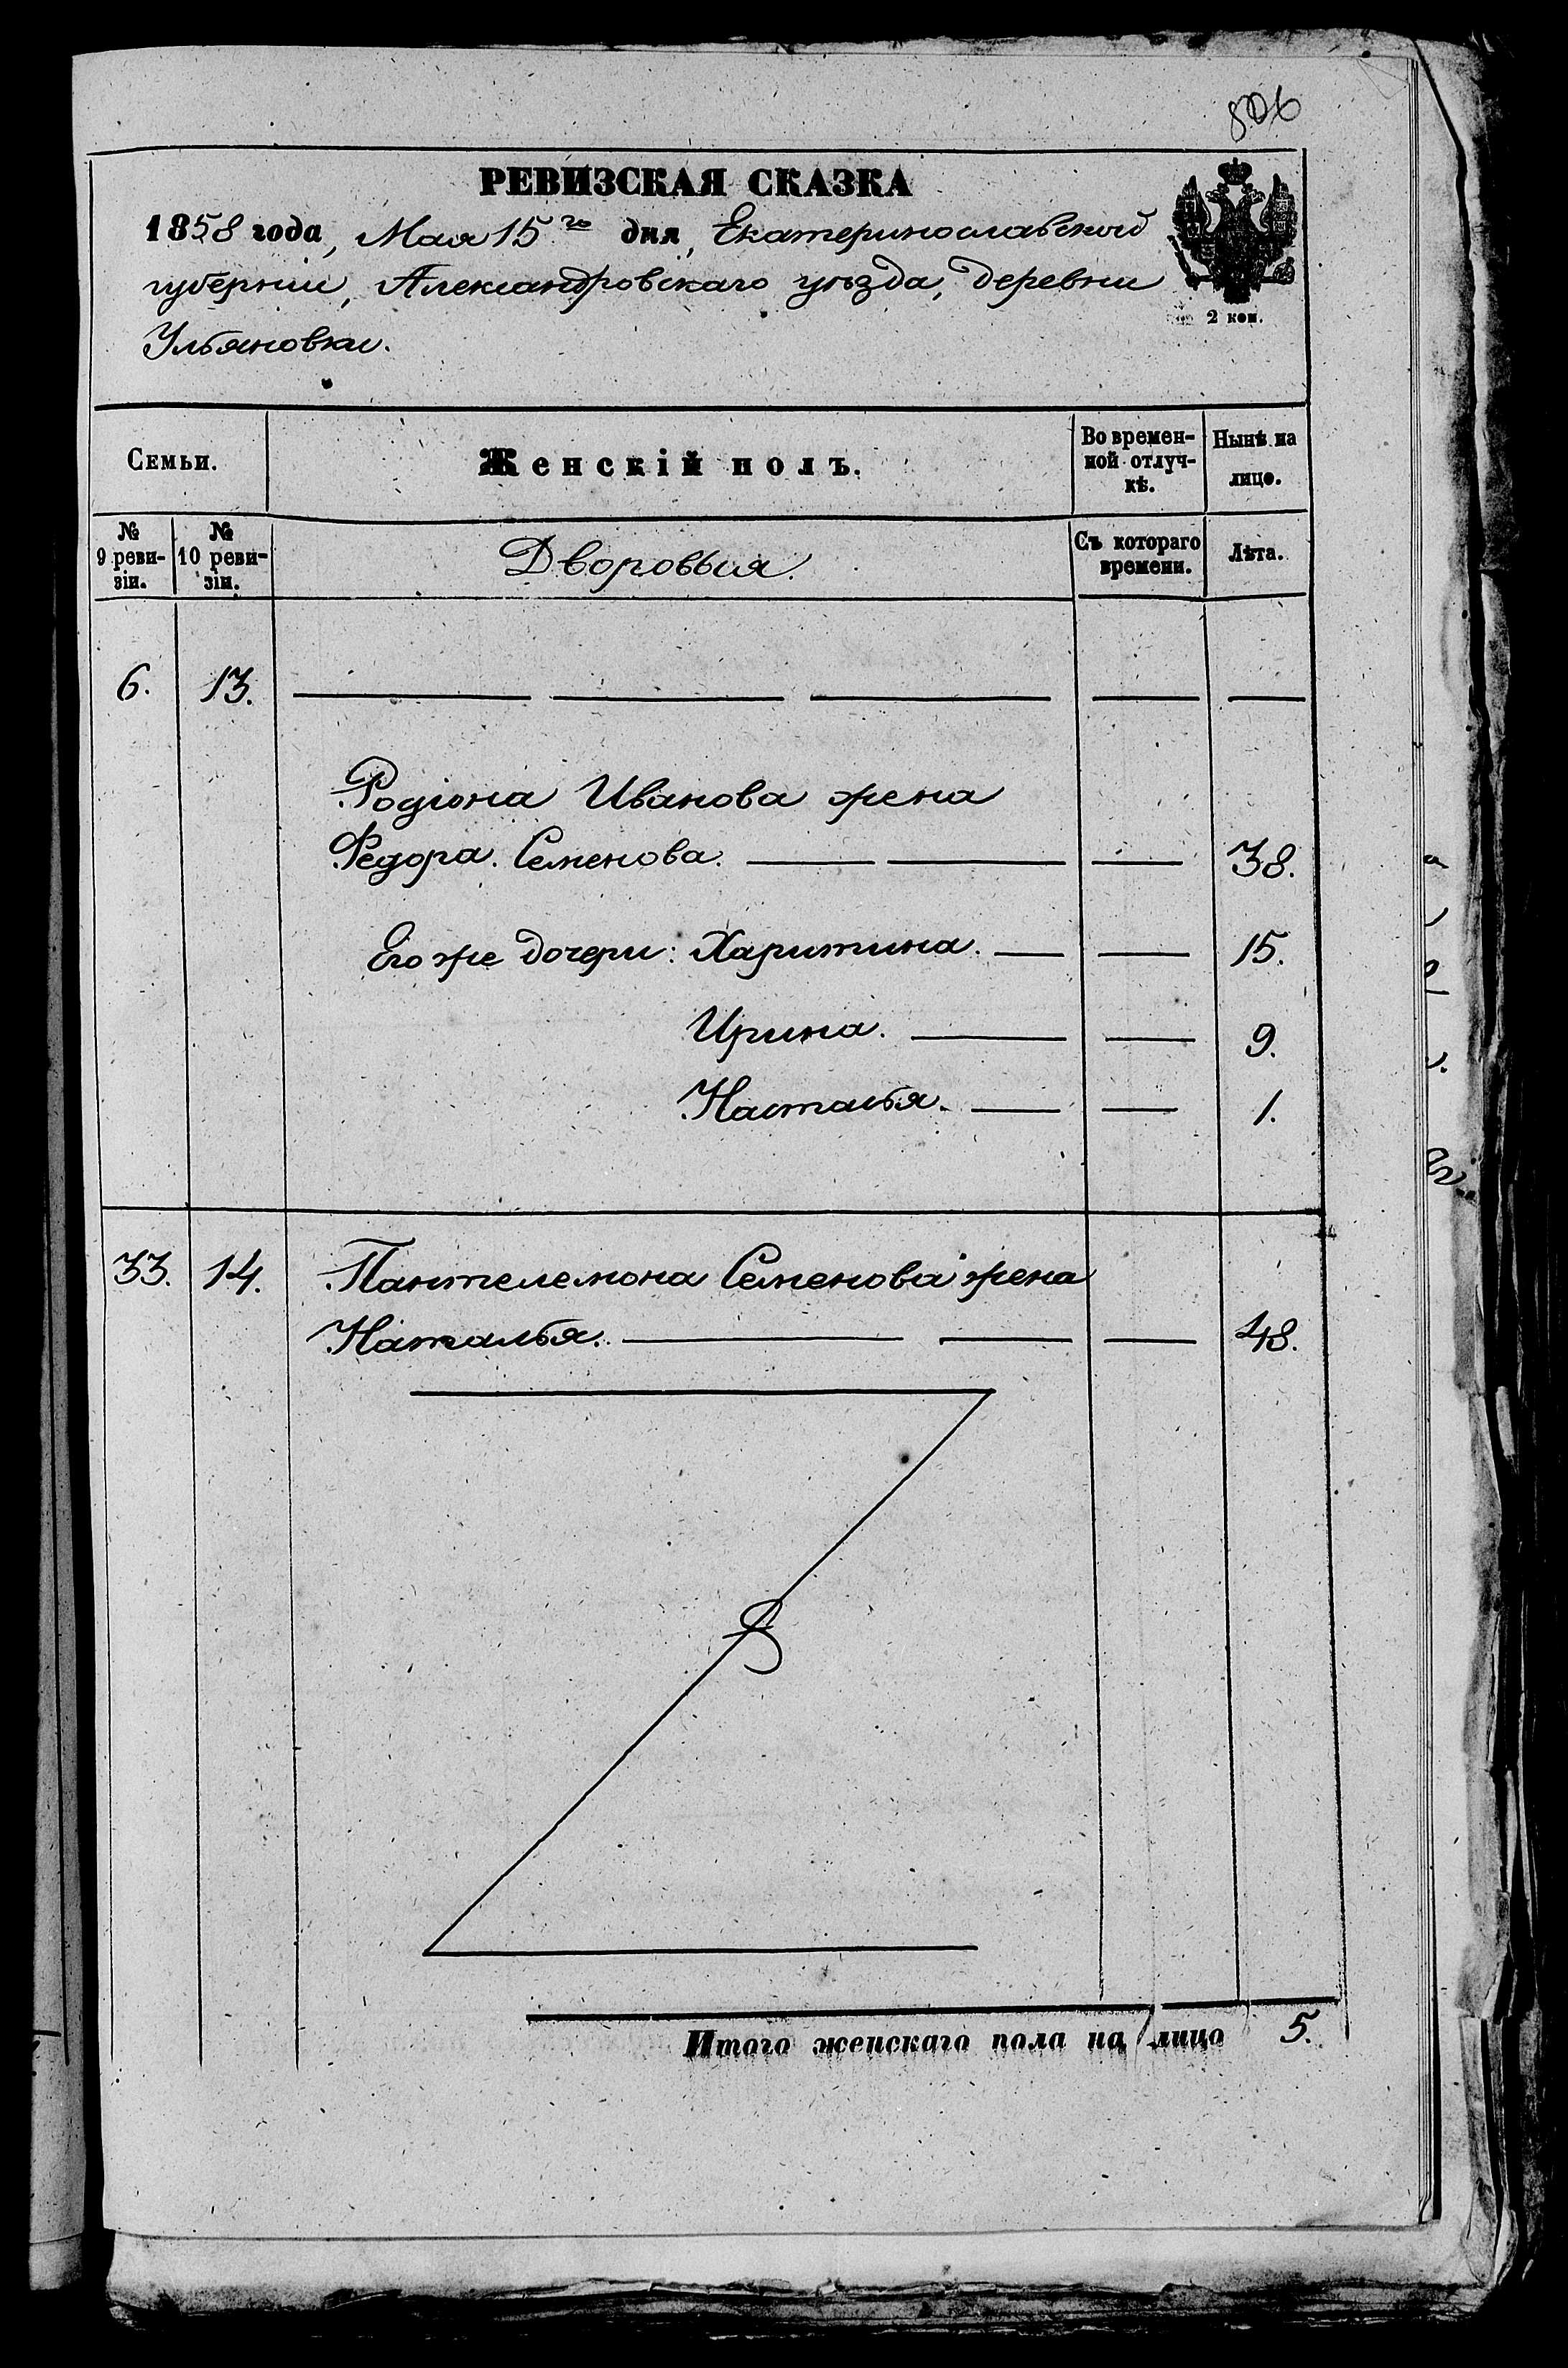 806
РЕВИЗСКАЯ СКАЗКА
1858 года, Мая 15го дня, Екатеринославской
губерніи, Александровскаго уѣзда, деревни
Ульяновки.
2 коп.
Семьи.
Женскій полъ.
Во времен-
ной отлуч-
кѣ.
Нынѣ на
лицо.
№
9 реви-
зіи.
№
10 реви-
зіи.
Дворовыя.
Съ котораго
времени.
Лѣта.
6. 13.
Родіона Иванова жена
Федора Семенова. 38.
Его же дочери: Харитина. 15.
Ирина. 9.
Настасья. 1.
33. 14. Пантелемона Семенова жена
Наталья. 48.
Итого женскаго пола на лицо 5.